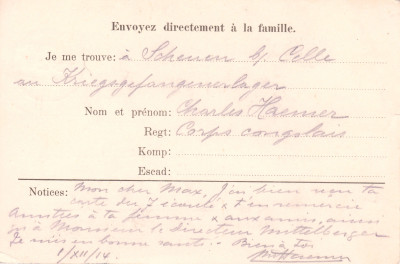 Envoyez directement à la famille.
Je me trouve: à Scheuen b/ Celle
au Kriegsgefangenenlager
Nom et prénom: Charles Haemer
Regt: Corps congolais
Komp:
Escad:
Notices: Mon cher Max, J'ai bien reçu ta
carte du 7 écoulé & t'en remercie
Amitiés à ta femme & aux amis, ainsi
qu'à Monsieur le directeur Mittelberger
Je suis en bonne santé. Bien à toi
1/XII/14.